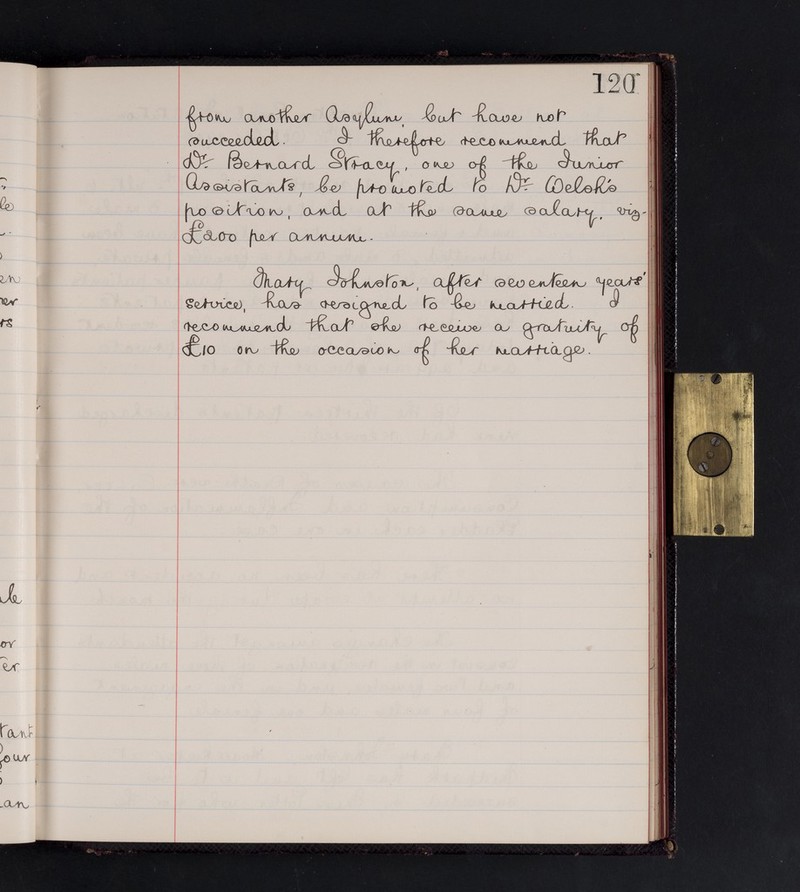 120
from another Asylum, but have not
succeeded. I therefore recommend that
Dr. Bernard Stracy, one of the Junior
Assistants, be promoted to Dr. Welsh's
position, and at the same salary, viz-
£200 per annum.
Mary Johnston, after seventeen years'
service, has resigned to be married. I
recommend that she receive a gratuity of
£10 on the occasion of her marriage.